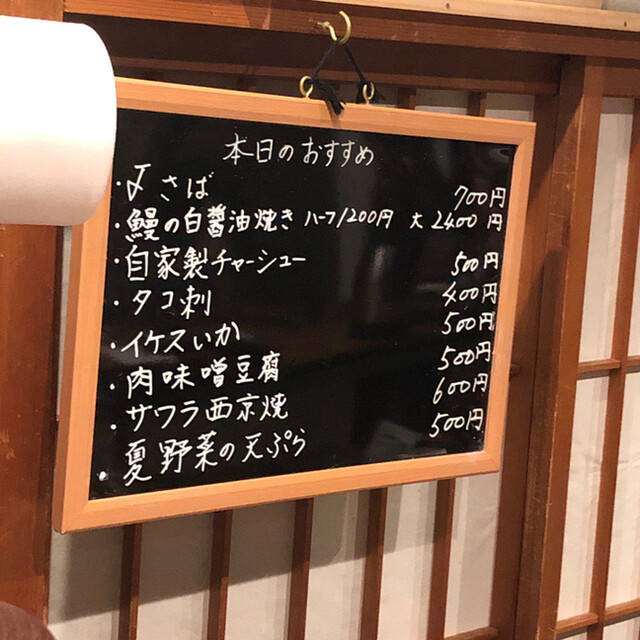 本日のおすすめ
・〆さば 700円
・鰻の白醤油焼き ハーフ1200円 大2400円
・自家製チャーシュー 500円
・タコ刺 400円
・イケスいか 500円
・肉味噌豆腐 500円
・サワラ西京焼 600円
・夏野菜の天ぷら 500円